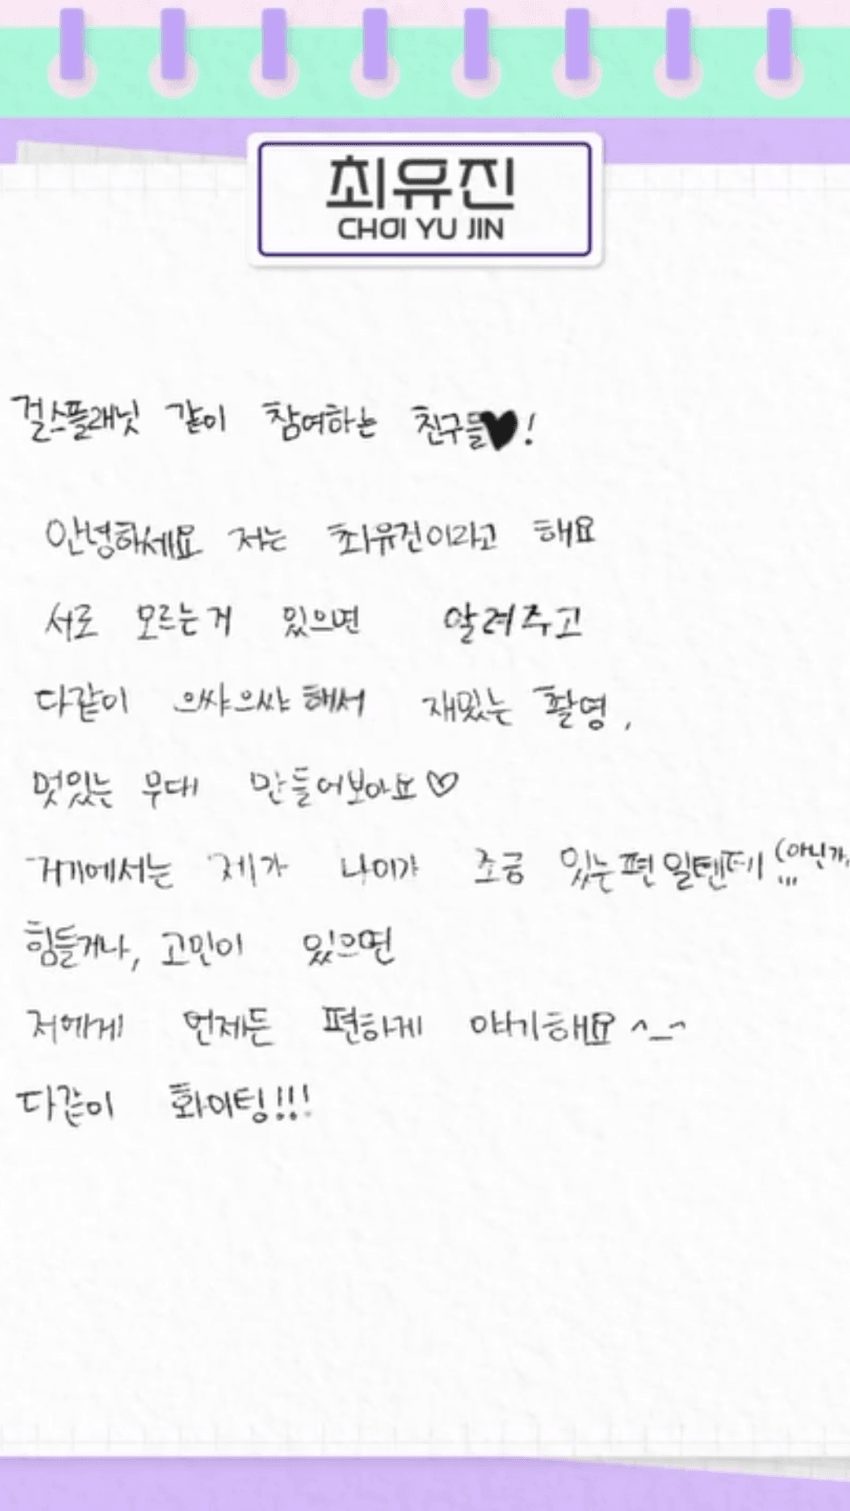 최유진
CHOI YU JIN
걸스플래닛 같이 참여하는 친구들♥!
안녕하세요 저는 최유진이라고 해요
서로 모르는거 있으면 알려주고
다같이 으쌰으쌰 해서 재밌는 촬영,
멋있는 무대 만들어보아요♡
거기에서는 제가 나이가 조금 있는편일텐데 (아닌가,
...
힘들거나, 고민이 있으면
저에게 언제든 편하게 얘기해요 ^_^
다같이 화이팅!!!